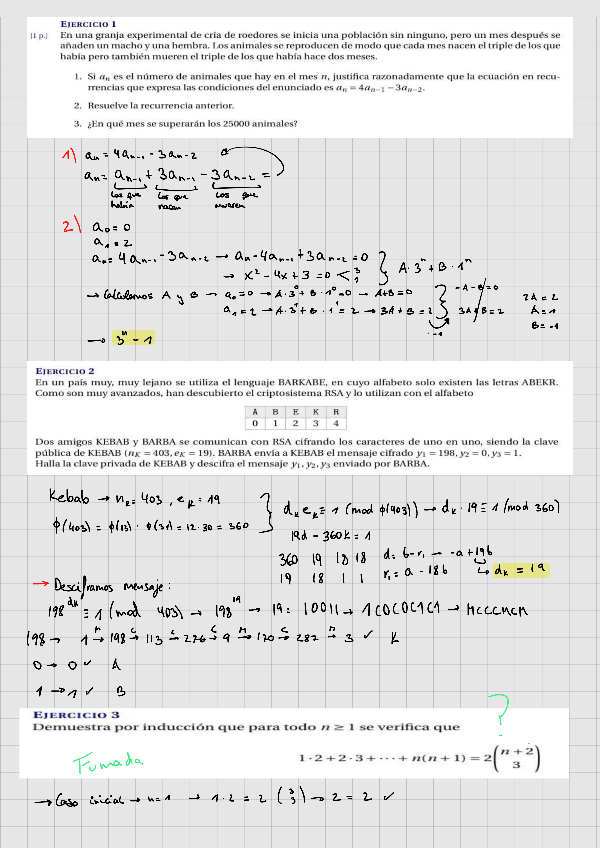 EJERCICIO 1
[1 p.] En una granja experimental de cría de roedores se inicia una población sin ninguno, pero un mes después se
añaden un macho y una hembra. Los animales se reproducen de modo que cada mes nacen el triple de los que
había pero también mueren el triple de los que había hace dos meses.
1. Si aₙ es el número de animales que hay en el mes n, justifica razonadamente que la ecuación en recu-
rrencias que expresa las condiciones del enunciado es aₙ = 4aₙ₋₁ − 3aₙ₋₂.
2. Resuelve la recurrencia anterior.
3. ¿En qué mes se superarán los 25000 animales?
1) aₙ = 4aₙ₋₁ - 3aₙ₋₂
aₙ = aₙ₋₁ + 3aₙ₋₁ - 3aₙ₋₂ =
Los que había Los que nacen Los que mueren
2) a₀ = 0
a₁ = 2
aₙ = 4aₙ₋₁ - 3aₙ₋₂ → aₙ - 4aₙ₋₁ + 3aₙ₋₂ = 0
→ x² - 4x + 3 = 0 < 3 1 } A·3ⁿ + B·1ⁿ
→ Calculamos A y B → a₀ = 0 → A·3⁰ + B·1⁰ = 0 → A+B = 0 } -A-B=0 2A = 2
a₁ = 2 → A·3¹ + B·1¹ = 2 → 3A + B = 2 3A+B = 2 A = 1
·-1 B = -1
→ 3ⁿ - 1
EJERCICIO 2
En un país muy, muy lejano se utiliza el lenguaje BARKABE, en cuyo alfabeto solo existen las letras ABEKR.
Como son muy avanzados, han descubierto el criptosistema RSA y lo utilizan con el alfabeto
A B E K R
0 1 2 3 4
Dos amigos KEBAB y BARBA se comunican con RSA cifrando los caracteres de uno en uno, siendo la clave
pública de KEBAB (n_K = 403, e_K = 19). BARBA envía a KEBAB el mensaje cifrado y₁ = 198, y₂ = 0, y₃ = 1.
Halla la clave privada de KEBAB y descifra el mensaje y₁, y₂, y₃ enviado por BARBA.
Kebab → n_K = 403, e_K = 19 } d_K e_K ≡ 1 (mod φ(403)) → d_K · 19 ≡ 1 (mod 360)
φ(403) = φ(13) · φ(31) = 12·30 = 360 19d - 360k = 1
360 19 18 18 d = b - r₁ → -a + 19b
19 18 1 1 r₁ = a - 18b ↳ d_K = 19
→ Desciframos mensaje:
198^dK ≡ 1 (mod 403) → 198¹⁹ → 19: 10011 → 1C0C0C1C1 → MCCCMCM
198 → 1 →M 198 →C 113 →C 276 →C 9 →M 170 →C 287 →M 3 ✓ K
0 → 0 ✓ A
1 → 1 ✓ B
EJERCICIO 3
Demuestra por inducción que para todo n ≥ 1 se verifica que
?
Fumada 1·2 + 2·3 + ··· + n(n+1) = 2(n+2 3)
→ Caso inicial → n=1 → 1·2 = 2 (3 3) → 2 = 2 ✓